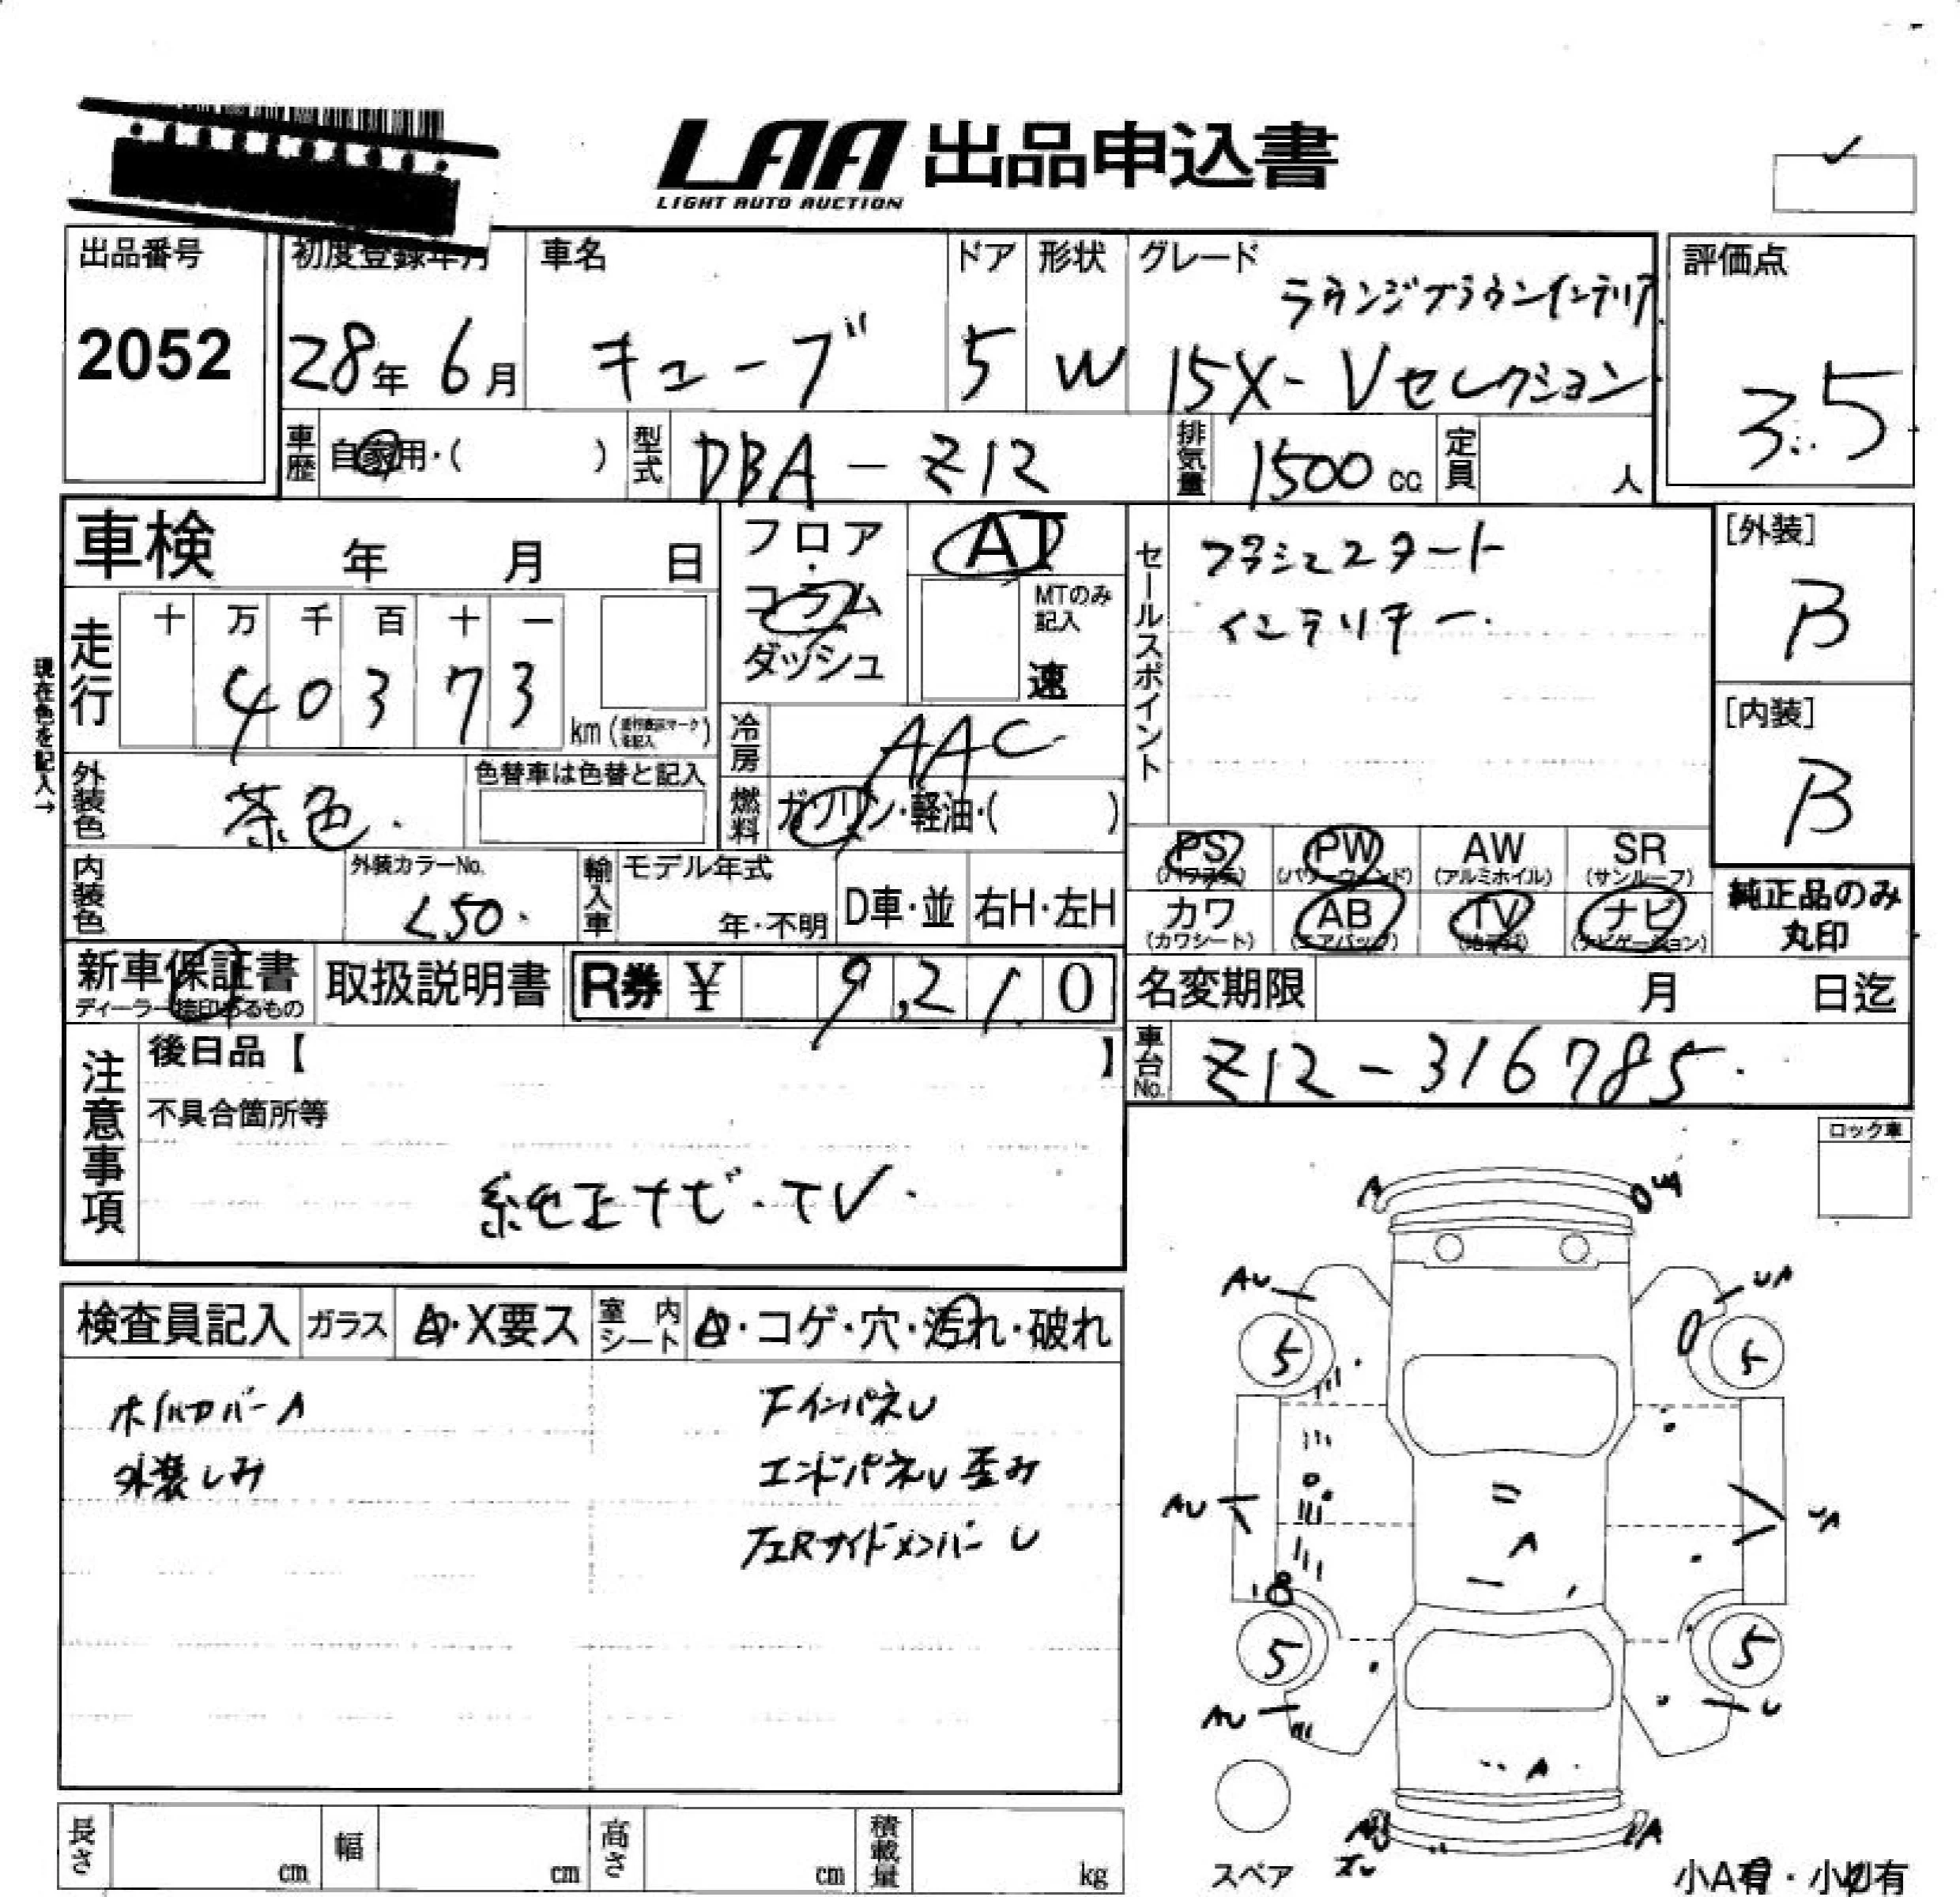 LAA 出品申込書
LIGHT AUTO AUCTION
出品番号
2052
初度登録年月
28年 6月
車名
キューブ
ドア
5
形状
W
グレード
ラウンジブラウンインテリア
15X-Vセレクション
評価点
3.5
車歴
自家用・( )
型式
DBA-Z12
排気量
1500cc
定員
人
車検 年 月 日
フロア・コラム
ダッシュ
AT
MTのみ記入
速
セールスポイント
プッシュスタート
インテリキー
[外装]
B
[内装]
B
現在色を記入→
走行
十 万 千 百 十 一
4 0 3 7 3
km
冷房
AAC
燃料
ガソリン・軽油・( )
外装色
茶色.
色替車は色替と記入
内装色
外装カラーNo.
L50.
輸入車
モデル年式
年・不明
D車・並
右H・左H
PS
(パワステ)
PW
(パワーウィンド)
AW
(アルミホイル)
SR
(サンルーフ)
カワ
(カワシート)
AB
(エアバッグ)
TV
ナビ
(ナビゲーション)
純正品のみ
丸印
新車保証書
ディーラー捺印あるもの
取扱説明書
R券 ¥ 9,210
名変期限 月 日迄
車台No.
Z12-316785.
注意事項
後日品【 】
不具合箇所等
純正ナビ・TV.
ロック車
検査員記入
ガラス
A・X要ス
室内シート
A・コゲ・穴・汚れ・破れ
ホイルカバーA
外装しみ
FインパネU
エンドパネU歪み
左RサイドメンバーU
A
AU
UA
5
5
AU
UA
A
8
5
5
AU
U
A
A
スペア
小A有・小U有
長さ cm
幅 cm
高さ cm
積載量 kg